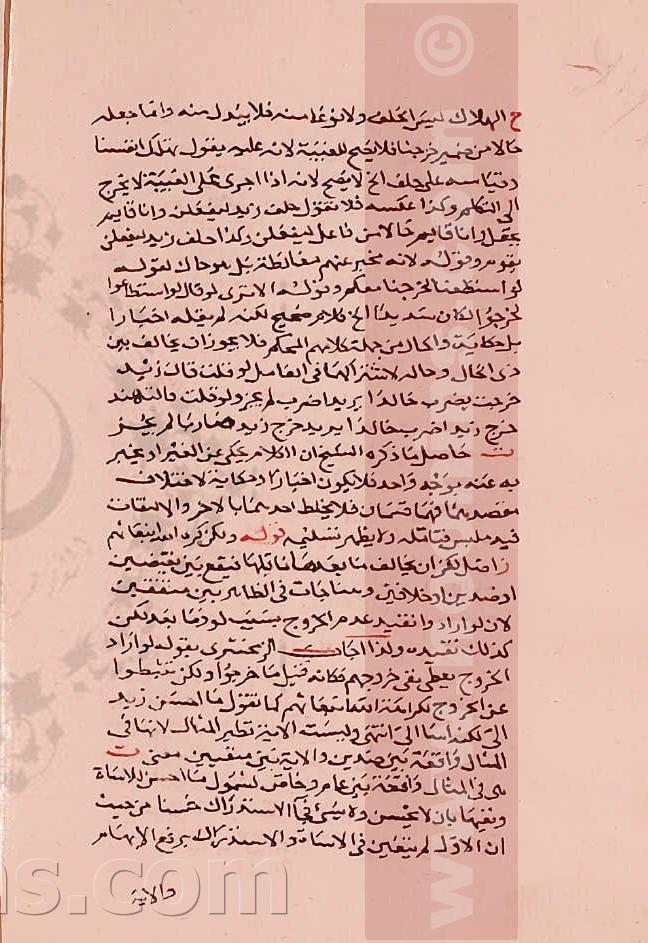 ح الهلاك ليس الحلف ولا نوعا منه فلا يبدل منه واما جعله
حالا من ضمير خرجنا فلا يصح للغيبة لانه عليه يقول نهلك انفسنا
وقياسه على حلف الخ لا يصح لانه اذا اجرى على الغيبة لا يخرج
الى التكلم وكذا عكسه فلا تقول حلف زيد ليفعلن وانا قايم
بجعل وانا قايم حالا من فاعل ليفعلن وكذا حلف زيد ليفعلن
يقوم وقوله لانه مخبر عنهم مغالطة بل هو حاك لقوله
لو استطعنا لخرجنا معكم وقوله الا ترى لو قال لو استطاعوا
لخرجوا لكان سديدا الخ كلام صحيح لكنه لم يقله اخبارا
بل حكاية والحال من جملة كلامهم المحكي فلا يجوز ان يخالف بين
ذى الحال وحاله لاشتراكهما فى العامل لو قلت قال زيد
خرجت يضرب خالدا يريد اضرب لم يجز ولو قلت قالت هند
خرج زيد اضرب خالدا يريد خرج زيد ضاربا لم يجز
ت حاصل ما ذكره الشيخ ان الكلام يحكى عن الغير او يخبر
به عنه بوجه واحد فلا يكون اخبارا وحكاية لاختلاف
مقصديهما فهما قسمان فلا يخلط احدهما بالاخر والالتفات
فيه ملبس فتامله ولا يظهر تسليمه قوله ولكن كره الله انبعاثهم
اصل لكن ان يخالف ما بعدها ما قبلها فتقع بين نقيضين
او ضدين او خلافين وجاءت فى الظاهر بين متفقين
لان لو ارادوا تفيد عدم الخروج بسبب لو وما بعد لكن
كذلك تفيده ولذا اجاب الزمخشرى بقوله لو اراد
الخروج يعطى نفى خروجهم فكانه قيل ما خرجوا ولكن تثبطوا
عن الخروج لكراهة الله انبعاثهم كما تقول ما احسن زيد
الى لكن اسا الى انتهى وليست الاية نظير المثال لانها فى
المثال واقعة بين ضدين والاية بين متفقين معنى ت
هى فى المثال واقعة بين عام وخاص لشمول ما احسن للاساة
ونفيها بان لا يحسن ولا يسئ فى الاستدراك حسنا من حيث
ان الاول لم يتعين فى الاساة والاستدراك يرفع الابهام
والاية